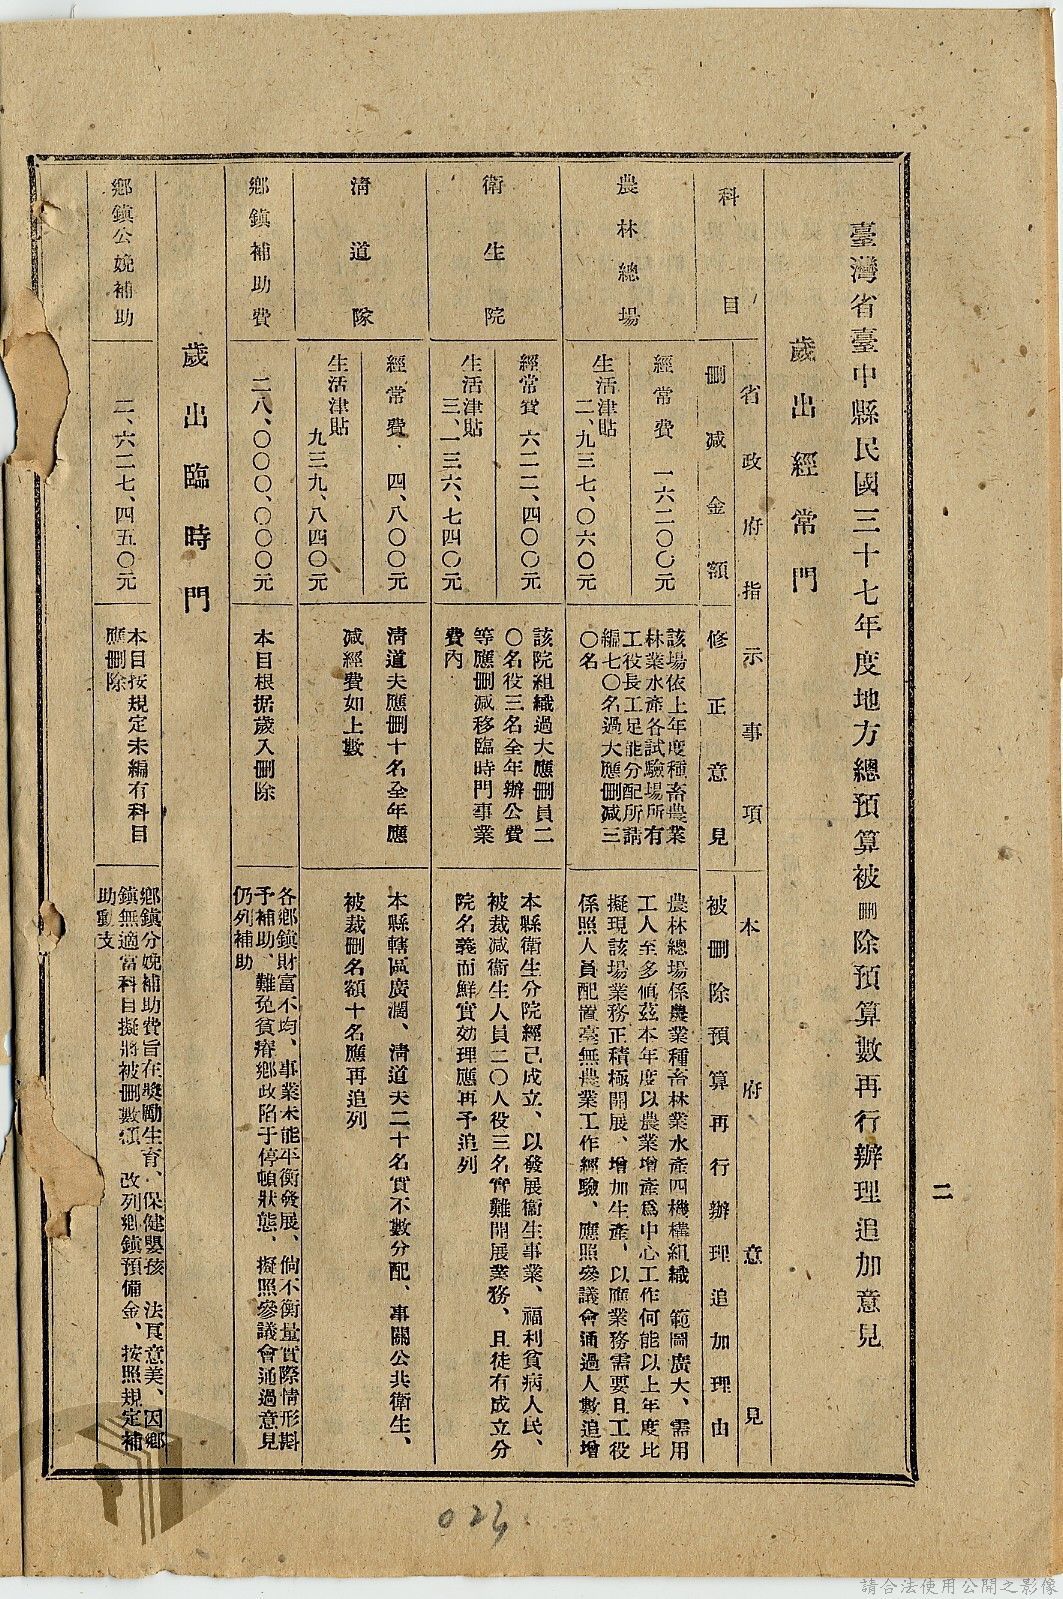 二
臺灣省臺中縣民國三十七年度地方總預算被刪除預算數再行辦理追加意見
歲出經常門
科目
省政府指示事項
本府意見
刪減金額
修正意見
被刪除預算再行辦理追加理由
農林總場
經常費 一六二〇〇元
生活津貼
二、九三七、〇六〇元
該場依上年度種畜農業
林業水產各試驗場所有
工役長工足能分配所請
編七〇名過大應刪減三
〇名
農林總場係農業種畜林業水產四機構組織 範圍廣大、需用
工人至多值茲本年度以農業增產為中心工作何能以上年度比
擬現該場業務正積極開展、增加生產、以應業務需要且工役
係照人員配置臺無農業工作經驗、應照參議會通過人數追增
衛生院
經常費 六二二、四〇〇元
生活津貼
三、一三六、七四〇元
該院組織過大應刪員二
〇名役三名全年辦公費
等應刪減移臨時門事業
費內
本縣衛生分院經已成立、以發展衛生事業、福利貧病人民、
被裁減衛生人員二〇人役三名實難開展業務、且徒有成立分
院名義而鮮實効理應再予追列
清道隊
經常費 四、八〇〇元
生活津貼
九三九、八四〇元
清道夫應刪十名全年應
減經費如上數
本縣轄區廣濶、清道夫二十名實不數分配、事關公共衛生、
被裁刪名額十名應再追列
鄉鎮補助費
二八、〇〇〇、〇〇〇元
本目根据歲入刪除
各鄉鎮財富不均、事業未能平衡發展、倘不衡量實際情形斟
予補助、難免貧瘠鄉政陷于停頓狀態、擬照參議會通過意見
仍列補助
歲出臨時門
鄉鎮公娩補助
二、六二七、四五〇元
本目按規定未編有科目
應刪除
鄉鎮分娩補助費旨在獎勵生育、保健嬰孩 法良意美、因鄉
鎮無適當科目擬將被刪數額 改列鄉鎮預備金、按照規定補
助動支
023
請合法使用公開之影像